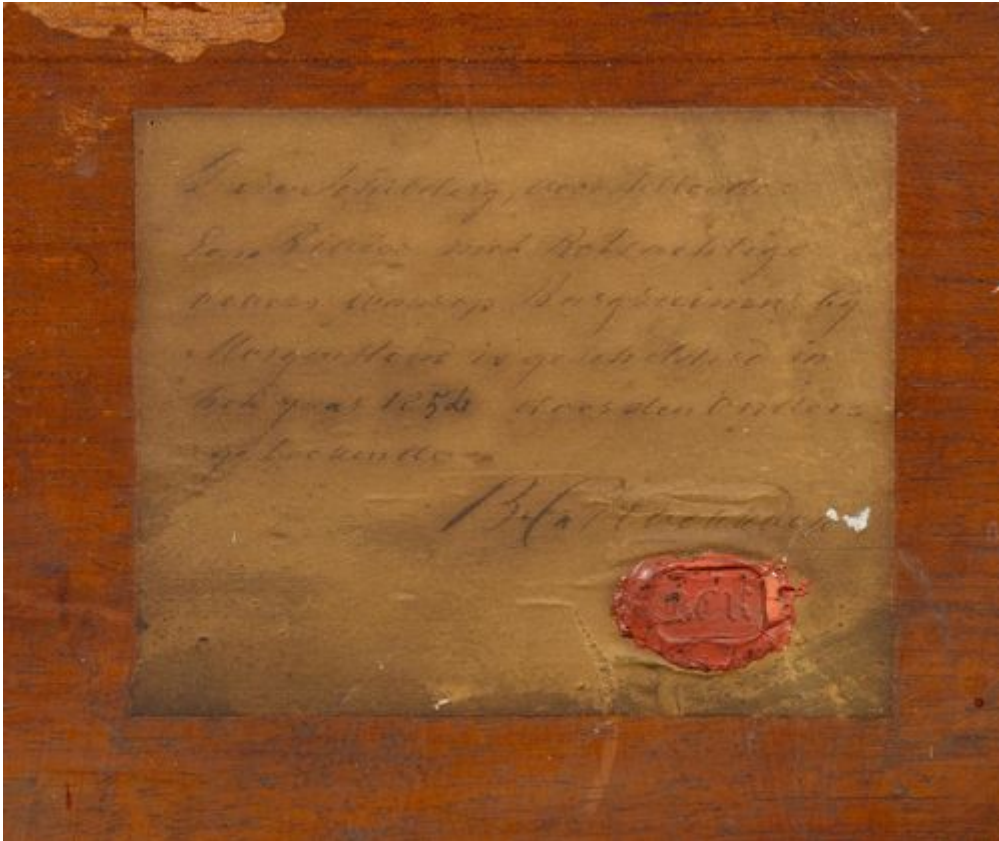 Deze schildery, voorstellende:
Een Rivier met Rotsachtige
oevers
Morgenstond is geschilderd in
het jaar 1854 door den Onder=
getekende
B.C. Koekkoek
BCK